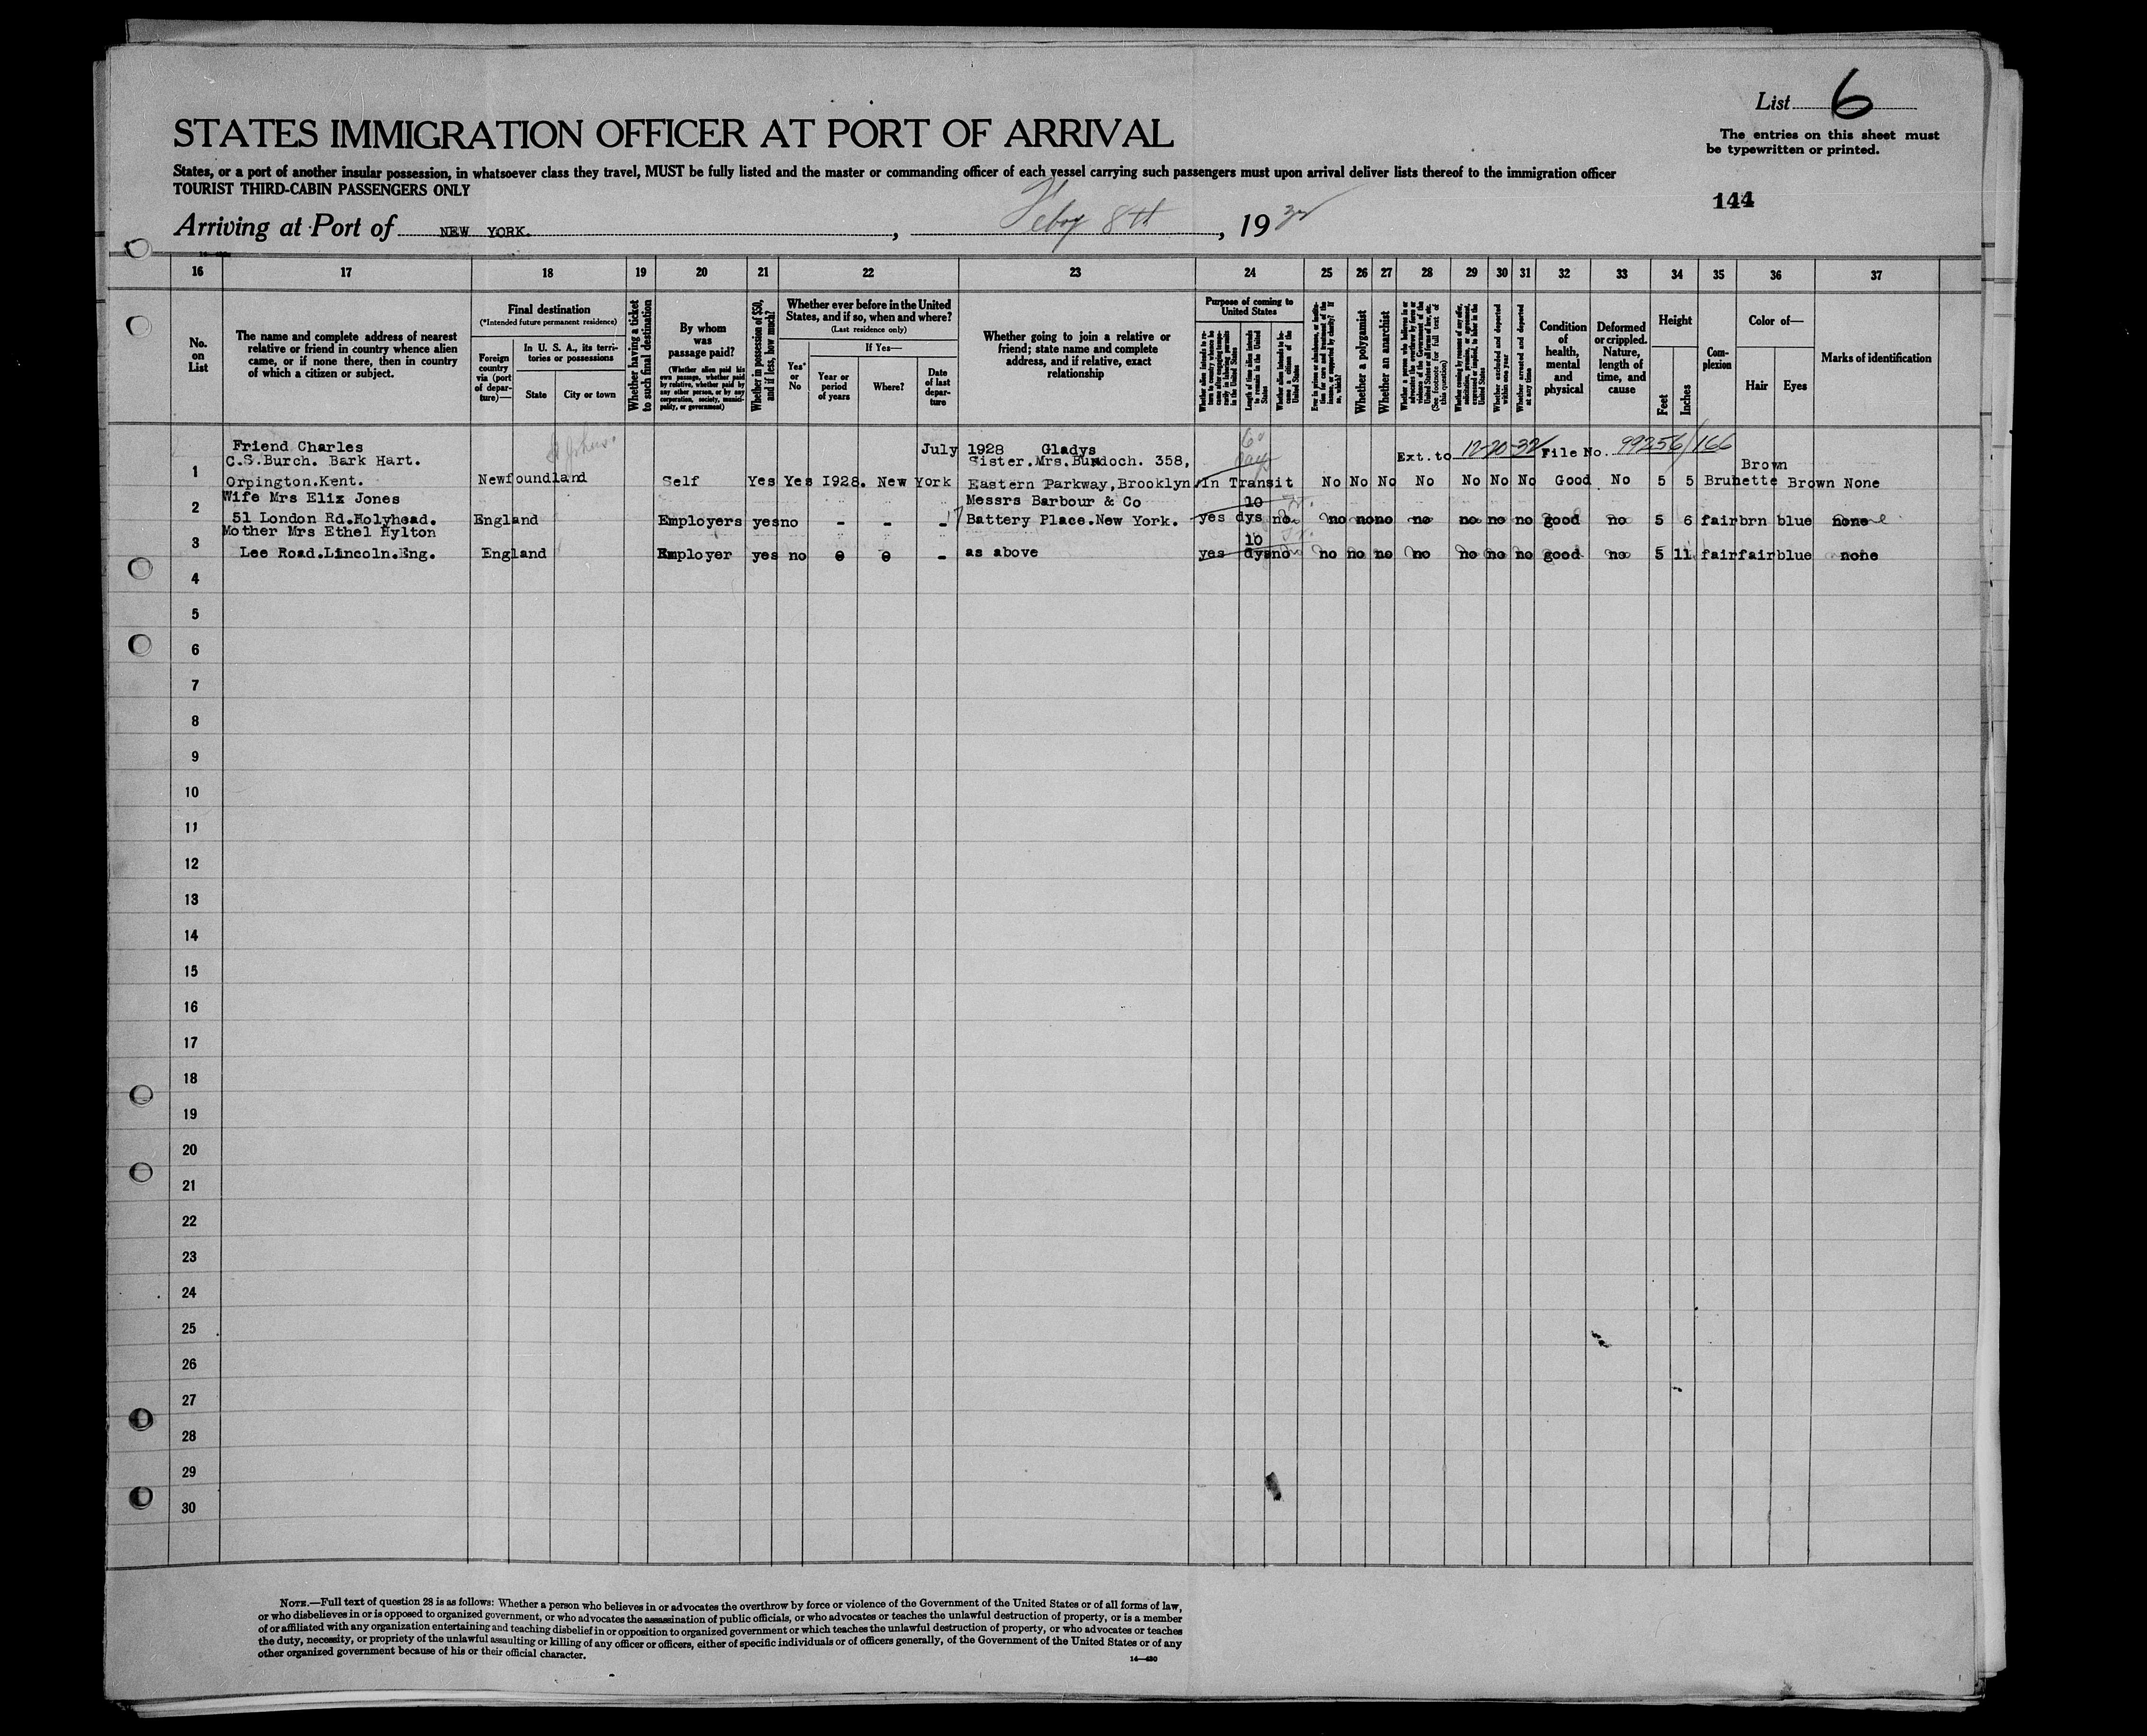 List 6
STATES IMMIGRATION OFFICER AT PORT OF ARRIVAL
The entries on this sheet must
be typewritten or printed.
States, or a port of another insular possession, in whatsoever class they travel, MUST be fully listed and the master or commanding officer of each vessel carrying such passengers must upon arrival deliver lists thereof to the immigration officer
TOURIST THIRD-CABIN PASSENGERS ONLY
144
Arriving at Port of NEW YORK. , Feby 8th , 19 32
16 17 18 19 20 21 22 23 24 25 26 27 28 29 30 31 32 33 34 35 36 37
No.
on
List
The name and complete address of nearest
relative or friend in country whence alien
came, or if none there, then in country
of which a citizen or subject.
Final destination
(*Intended future permanent residence)
Foreign
country
via (port
of depar-
ture)—
In U. S. A., its terri-
tories or possessions
State
City or town
Whether having a ticket
to such final destination
By whom
was
passage paid?
(Whether alien paid his
own passage, whether paid
by relative, whether paid by
any other person, or by any
corporation, society, munici-
pality, or government)
Whether in possession of $50,
and if less, how much?
Whether ever before in the United
States, and if so, when and where?
(Last residence only)
Yes*
or
No
If Yes—
Year or
period
of years
Where?
Date
of last
depar-
ture
Whether going to join a relative or
friend; state name and complete
address, and if relative, exact
relationship
Purpose of coming to
United States
Whether alien intends to re-
turn to country whence he
came after engaging tempo-
rarily in laboring pursuits
in the United States
Length of time alien intends
to remain in the United
States
Whether alien intends to be-
come a citizen of the
United States
Ever in prison or almshouse, or institu-
tion for care and treatment of the
insane, or supported by charity? If
so, which?
Whether a polygamist
Whether an anarchist
Whether a person who believes in or
advocates the overthrow by force or
violence of the Government of the
United States or all forms of law, etc.
(See footnote for full text of
this question)
Whether coming by reason of any offer,
solicitation, promise, or agreement,
expressed or implied, to labor in the
United States
Whether excluded and deported
within one year
Whether arrested and deported
at any time
Condition
of
health,
mental
and
physical
Deformed
or crippled.
Nature,
length of
time, and
cause
Height
Feet
Inches
Com-
plexion
Color of—
Hair
Eyes
Marks of identification
Friend Charles July 1928 Gladys 60
C.S.Burch. Bark Hart. Sister.Mrs.Burdoch. 358, days Ext. to 12-20-32 File No. 99256/166
1 Brown
Orpington.Kent. Newfoundland Self Yes Yes 1928. New York Eastern Parkway,Brooklyn In Transit No No No No No No No Good No 5 5 Brunette Brown None
Wife Mrs Elix Jones Messrs Barbour & Co 10
2 51 London Rd.Holyhead. England Employers yes no - - - Battery Place.New York. yes dys no no no no no no no no good no 5 6 fair brn blue none
Mother Mrs Ethel Hylton 10
3 Lee Road.Lincoln.Eng. England Employer yes no - as above yes dys no no no no no no no no good no 5 11 fair fair blue none
4
5
6
7
8
9
10
11
12
13
14
15
16
17
18
19
20
21
22
23
24
25
26
27
28
29
30
NOTE.—Full text of question 28 is as follows: Whether a person who believes in or advocates the overthrow by force or violence of the Government of the United States or of all forms of law,
or who disbelieves in or is opposed to organized government, or who advocates the assassination of public officials, or who advocates or teaches the unlawful destruction of property, or is a member
of or affiliated with any organization entertaining and teaching disbelief in or opposition to organized government or which teaches the unlawful destruction of property, or who advocates or teaches
the duty, necessity, or propriety of the unlawful assaulting or killing of any officer or officers, either of specific individuals or of officers generally, of the Government of the United States or of any
other organized government because of his or their official character.
14—430